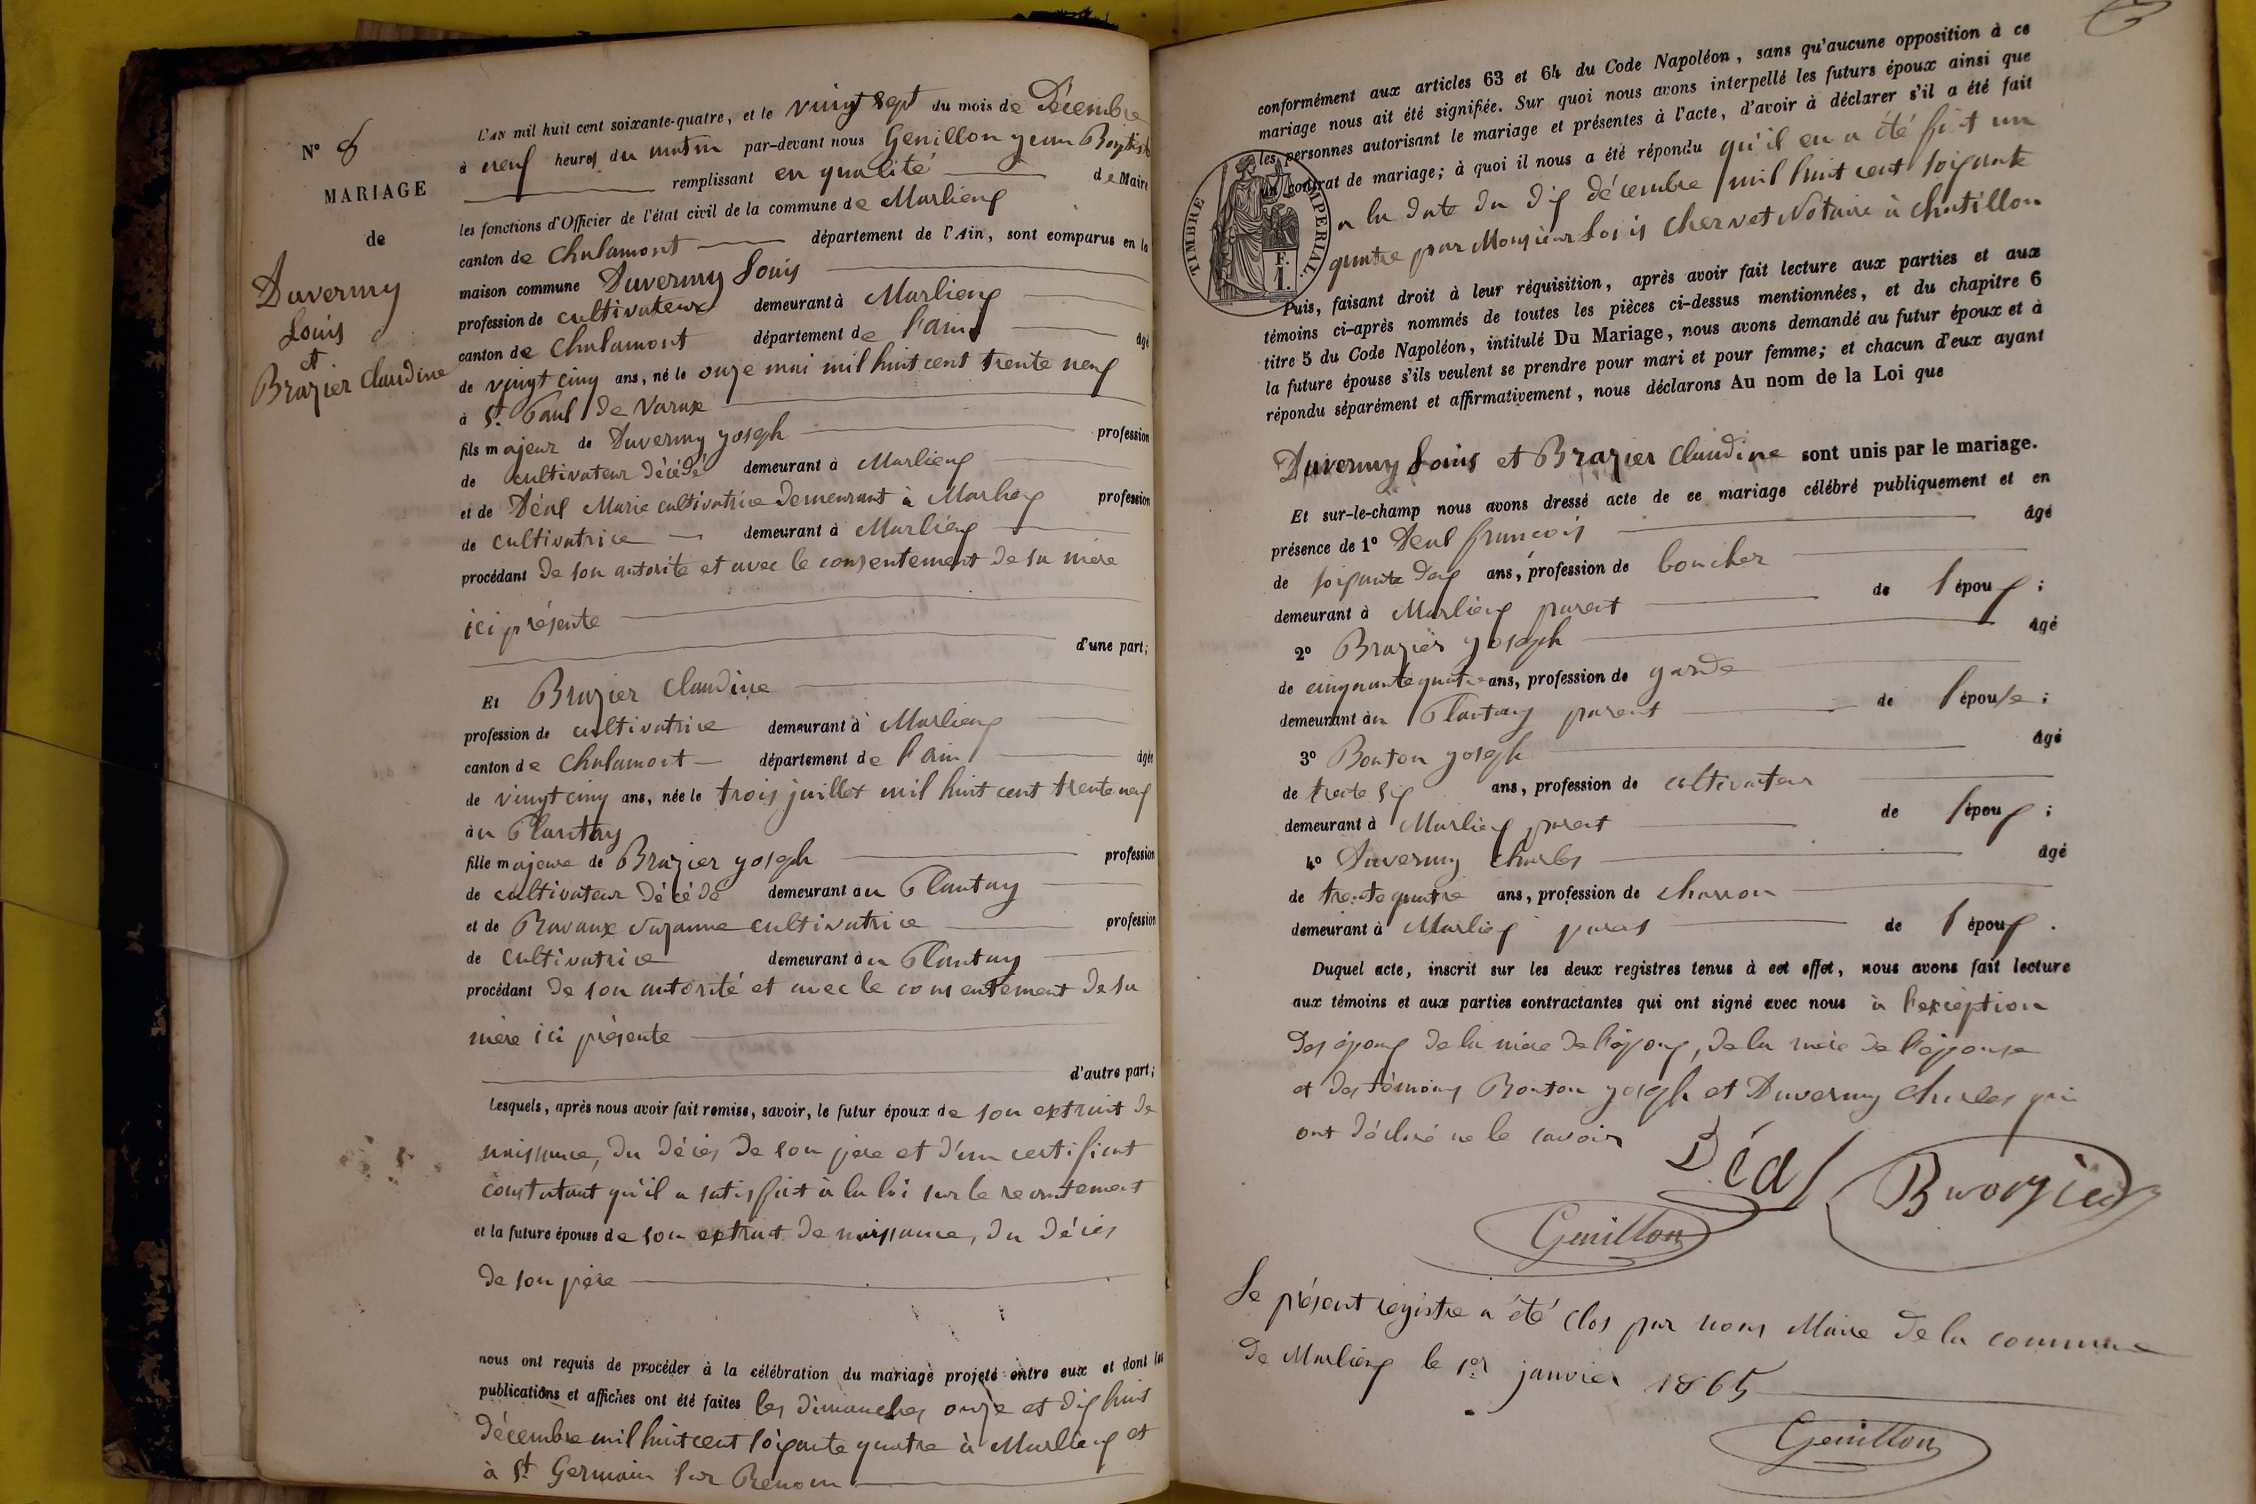 N° 8
MARIAGE
de
Duvermy
Louis
et
Brazier Claudine
L'AN mil huit cent soixante-quatre, et le vingt sept du mois de Décembre
à neuf heures du matin par-devant nous Genillon jean Baptiste
remplissant en qualité de Maire
les fonctions d'Officier de l'état civil de la commune de Marlieux
canton de Chalamont département de l'Ain, sont comparus en la
maison commune Duvermy Louis
profession de cultivateur demeurant à Marlieux
canton de Chalamont département de l'ain âgé
de vingt cinq ans, né le onze mai mil huit cent trente neuf
à St Paul de Varax
fils majeur de Duvermy joseph profession
de cultivateur décédé demeurant à Marlieux
et de Déal Marie cultivatrice demeurant à Marlieux profession
de cultivatrice demeurant à Marlieux
procédant de son autorité et avec le consentement de sa mère
ici présente
d'une part;
Et Brazier Claudine
profession de cultivatrice demeurant à Marlieux
canton de Chalamont département de l'ain âgée
de vingt cinq ans, née le trois juillet mil huit cent trente neuf
au Plantay
fille majeure de Brazier joseph profession
de cultivateur décédé demeurant au Plantay
et de Ravaux suzanne cultivatrice profession
de cultivatrice demeurant au Plantay
procédant de son autorité et avec le consentement de sa
mère ici présente
d'autre part;
Lesquels, après nous avoir fait remise, savoir, le futur époux de son extrait de
naissance, du décès de son père et d'un certificat
constatant qu'il a satisfait à la loi sur le recrutement
et la future épouse de son extrait de naissance, du décès
de son père
nous ont requis de procéder à la célébration du mariage projeté entre eux et dont les
publications et affiches ont été faites les dimanches onze et dix huit
décembre mil huit cent soixante quatre à Marlieux et
à St Germain sur Renom
conformément aux articles 63 et 64 du Code Napoléon, sans qu'aucune opposition à ce
mariage nous ait été signifiée. Sur quoi nous avons interpellé les futurs époux ainsi que
les personnes autorisant le mariage et présentes à l'acte, d'avoir à déclarer s'il a été fait
un contrat de mariage; à quoi il nous a été répondu qu'il en a été fait un
a la date du dix décembre mil huit cent soixante
quatre par Monsieur Louis Chervet Notaire à Chatillon
TIMBRE IMPERIAL.
1 F.
Puis, faisant droit à leur réquisition, après avoir fait lecture aux parties et aux
témoins ci-après nommés de toutes les pièces ci-dessus mentionnées, et du chapitre 6
titre 5 du Code Napoléon, intitulé Du Mariage, nous avons demandé au futur époux et à
la future épouse s'ils veulent se prendre pour mari et pour femme; et chacun d'eux ayant
répondu séparément et affirmativement, nous déclarons Au nom de la Loi que
Duvermy Louis et Brazier Claudine sont unis par le mariage.
Et sur-le-champ nous avons dressé acte de ce mariage célébré publiquement et en
présence de 1° Deal francois âgé
de soixante deux ans, profession de boucher
demeurant à Marlieux parent de l'époux;
2° Brazier joseph âgé
de cinquante quatre ans, profession de garde
demeurant au Plantay parent de l'épouse;
3° Bouton joseph âgé
de trente six ans, profession de cultivateur
demeurant à Marlieux parent de l'époux;
4° Duvermy Charles âgé
de trente quatre ans, profession de charron
demeurant à Marlieux parent de l'époux.
Duquel acte, inscrit sur les deux registres tenus à cet effet, nous avons fait lecture
aux témoins et aux parties contractantes qui ont signé avec nous à l'exception
des époux de la mère de l'époux, de la mère de l'épouse
et des témoins Bouton joseph et Duvermy Charles qui
ont déclaré ne le savoir
Déal
Brazier
Genillon
Le présent registre a été clos par nous Maire de la commune
de Marlieux le 1er janvier 1865
Genillon